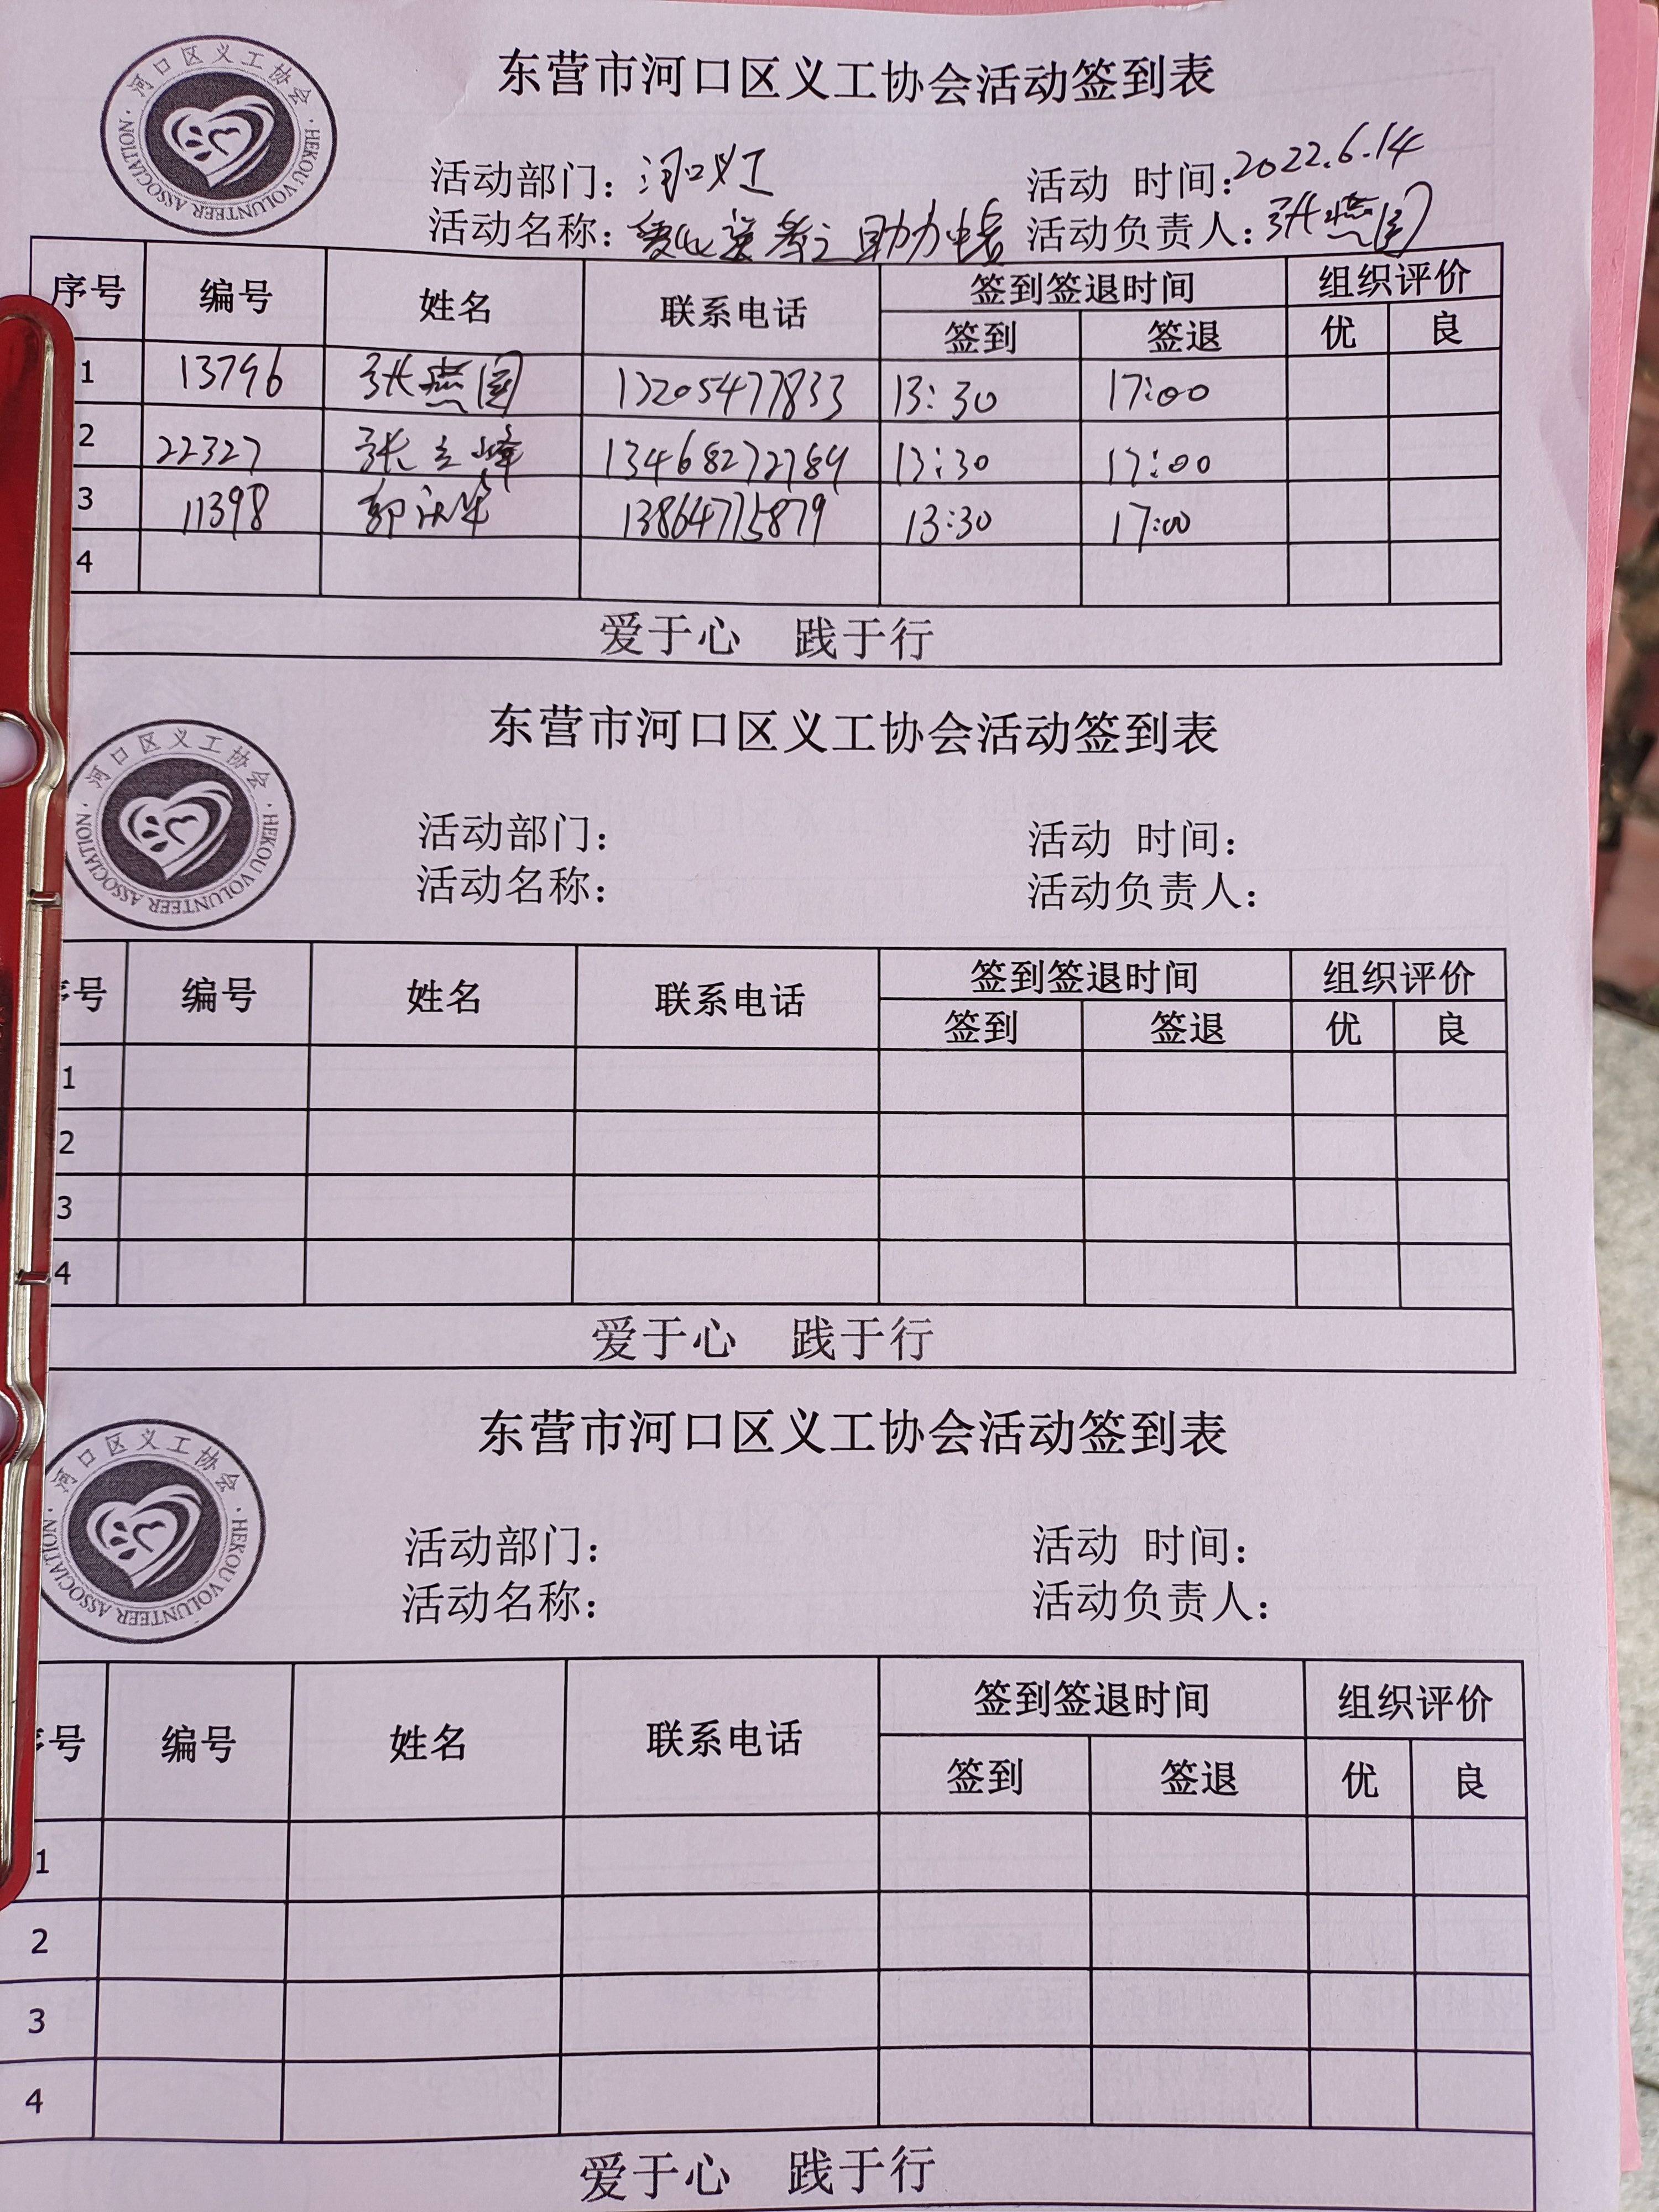 河口区义工协会
HEKOU VOLUNTEER ASSOCIATION
东营市河口区义工协会活动签到表
活动部门：河口义工 活动 时间：2022.6.14
活动名称：爱心送考之助力中考 活动负责人：张燕国
序号 编号 姓名 联系电话 签到签退时间 组织评价
签到 签退 优 良
1 13796 张燕国 13205477833 13:30 17:00
2 22327 张立峰 13468272789 13:30 17:00
3 11398 郭 13864775879 13:30 17:00
4
爱于心 践于行
河口区义工协会
HEKOU VOLUNTEER ASSOCIATION
东营市河口区义工协会活动签到表
活动部门： 活动 时间：
活动名称： 活动负责人：
号 编号 姓名 联系电话 签到签退时间 组织评价
签到 签退 优 良
1
2
3
4
爱于心 践于行
河口区义工协会
HEKOU VOLUNTEER ASSOCIATION
东营市河口区义工协会活动签到表
活动部门： 活动 时间：
活动名称： 活动负责人：
号 编号 姓名 联系电话 签到签退时间 组织评价
签到 签退 优 良
1
2
3
4
爱于心 践于行